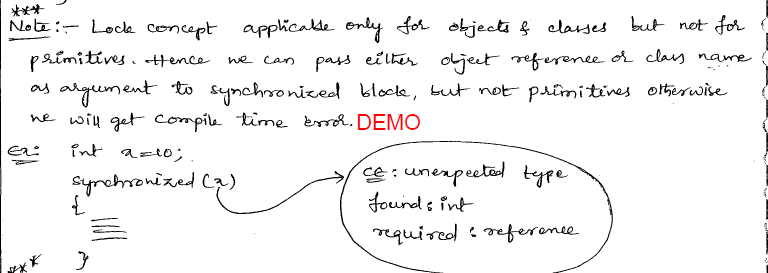 ***
Note:- Lock concept applicable only for objects & classes but not for
primitives. Hence we can pass either object reference or class name
as argument to synchronized block, but not primitives otherwise
we will get compile time error. DEMO
Ex: int x=10;
synchronized(x)
{
}
CE: unexpected type
found: int
required: reference
***